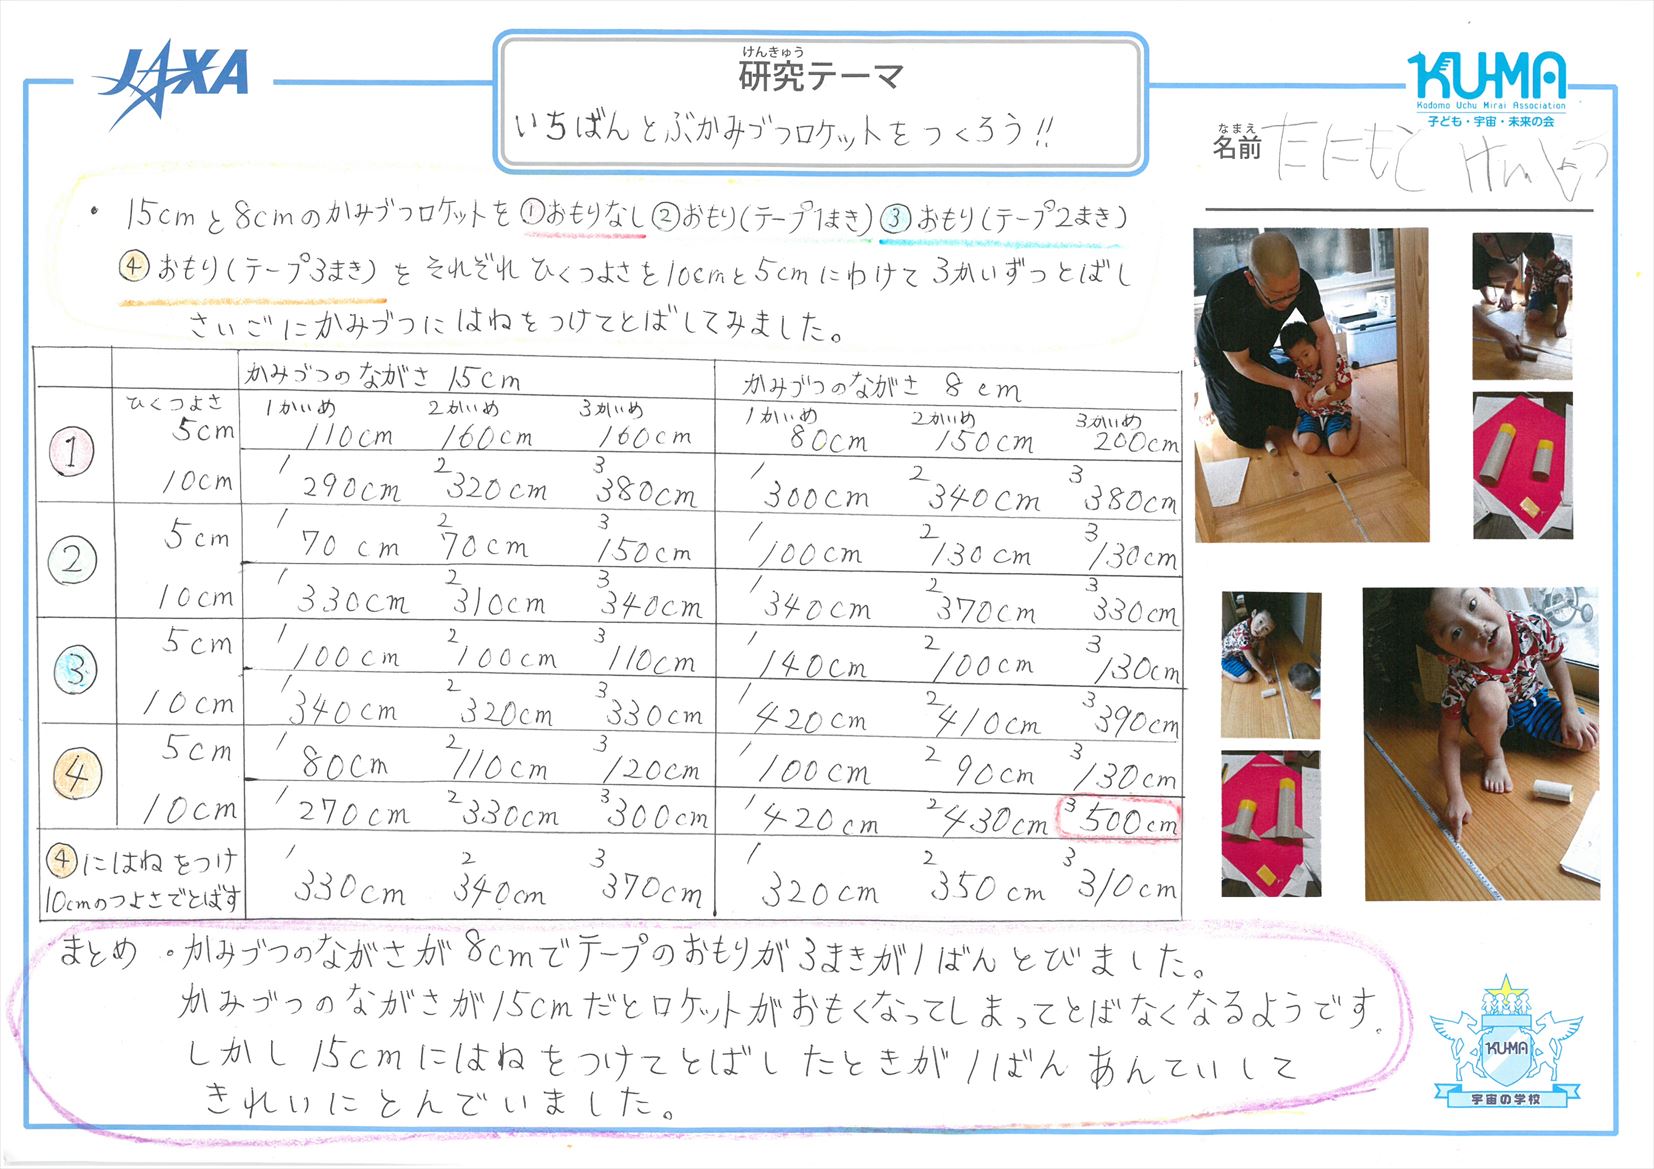 JAXA
けんきゅう
研究テーマ
いちばんとぶかみづつロケットをつくろう!!
KU-MA
Kodomo Uchu Mirai Association
子ども・宇宙・未来の会
なまえ
名前 たにもと けんしょう
・15cmと8cmのかみづつロケットを①おもりなし②おもり(テープ1まき)③おもり(テープ2まき)
④おもり(テープ3まき)をそれぞれひくつよさを10cmと5cmにわけて3かいずつとばし
さいごにかみづつにはねをつけてとばしてみました。
かみづつのながさ 15cm かみづつのながさ 8cm
ひくつよさ 1かいめ 2かいめ 3かいめ 1かいめ 2かいめ 3かいめ
① 5cm 110cm 160cm 160cm 80cm 150cm 200cm
10cm 1 290cm 2 320cm 3 380cm 1 300cm 2 340cm 3 380cm
② 5cm 1 70cm 2 70cm 3 150cm 1 100cm 2 130cm 3 130cm
10cm 1 330cm 2 310cm 3 340cm 1 340cm 2 370cm 3 330cm
③ 5cm 1 100cm 2 100cm 3 110cm 1 140cm 2 100cm 3 130cm
10cm 1 340cm 2 320cm 3 330cm 1 420cm 2 410cm 3 390cm
④ 5cm 1 80cm 2 110cm 3 120cm 1 100cm 2 90cm 3 130cm
10cm 1 270cm 2 330cm 3 300cm 1 420cm 2 430cm 3 500cm
④にはねをつけ
10cmのつよさでとばす 1 330cm 2 340cm 3 370cm 1 320cm 2 350cm 3 310cm
まとめ ・かみづつのながさが8cmでテープのおもりが3まきが1ばんとびました。
かみづつのながさが15cmだとロケットがおもくなってしまってとばなくなるようです。
しかし15cmにはねをつけてとばしたときが1ばんあんていして
きれいにとんでいました。
KUMA
宇宙の学校